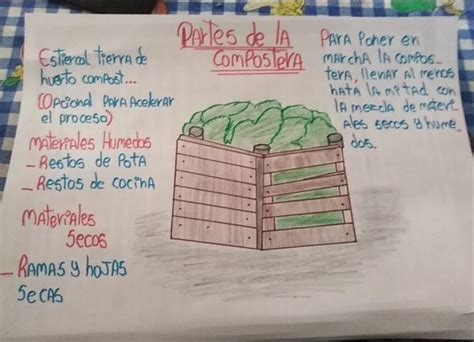 Partes de la
Compostera
Estiercol tierra de
huerto compost...
(Opcional para acelerar
el proceso)
Materiales Humedos
- Restos de Pota
- Restos de cocina
Materiales
Secos
- Ramas y hojas
Secas
Para Poner en
marcha la compos-
tera, llenar al meros
hata la mitad con
la mezcla de materi-
ales secos y hume-
dos.